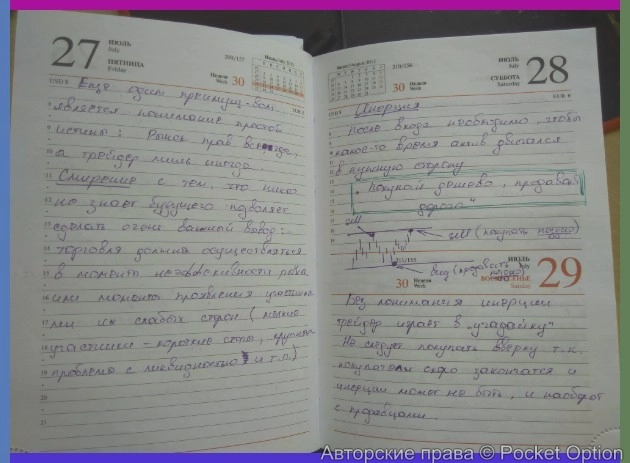 27
ИЮЛЬ
July
ПЯТНИЦА
Friday
209/157
Неделя
Week 30
Еще один
является понимание простой
истины: Рынок прав всегда,
а трейдер лишь иногда.
Смирение с тем, что никто
не знает будущего позволяет
сделать очень важный вывод:
торговля должна осуществляться
в моменты рынка
или моменты проявления участниками
их слабых сторон (мелкие
участники - короткие стопы, крупные
проблема с ликвидностью и т.п.)
ИЮЛЬ
July
СУББОТА
Saturday
28
210/156
30 Неделя
Week
Инерция
После входа необходимо, чтобы
какое-то время актив двигался
в нужную сторону
"Покупай дешево, продавай
дорого"
sell
sell (покупать поздно)
buy (продавать поздно)
211/155
30 Неделя
Week
ИЮЛЬ
July
ВОСКРЕСЕНЬЕ
Sunday
29
Без понимания инерции
трейдер играет в "угадайку"
Не следует покупать вверху т.к.
покупатели скоро закончатся и
инерции может не быть, и наоборот
с продавцами.
Авторские права © Pocket Option